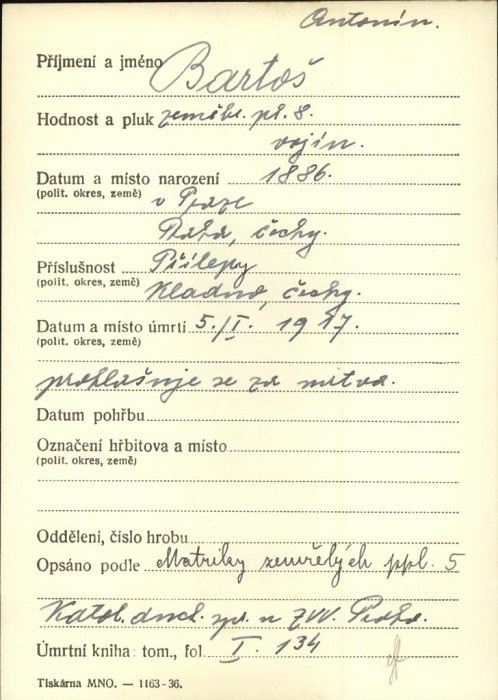 Antonín.
Příjmení a jméno Bartoš
Hodnost a pluk zeměbr. pl. 8.
vojín.
Datum a místo narození 1886.
(polit. okres, země) v Praze
Praha, čechy.
Příslušnost Přílepy
(polit. okres, země) Kladno, čechy.
Datum a místo úmrtí 5./I. 1917.
(polit. okres, země)
prohlašuje se za mrtva.
Datum pohřbu
Označení hřbitova a místo
(polit. okres, země)
Oddělení, číslo hrobu
Opsáno podle Matriky zemřelých ppl. 5
Katol. duch. spr. u ZVV. Praha.
Úmrtní kniha: tom., fol I. 134
Tiskárna MNO. — 1163-36.